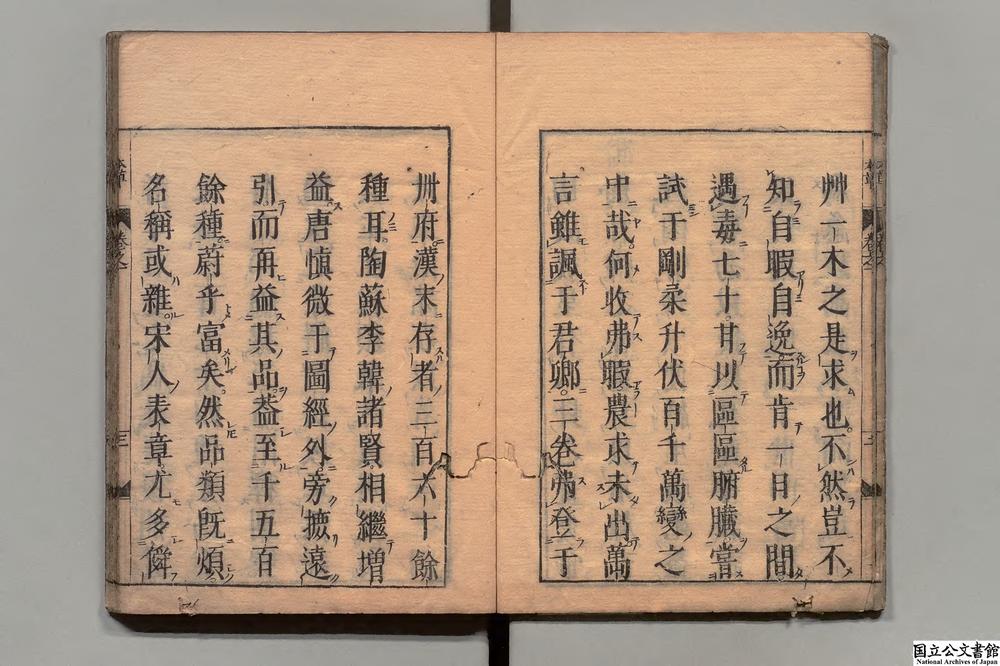 艸一木之是求也不然豈不
知自暇自逸而肯一日之間
遇毒七十甘以區區腑臟嘗
試于剛柔升伏百千萬變之
中哉何收弗暇農求未出萬
言雖諷于君卿三卷弗登于
卌府漢末存者三百六十餘
種耳陶蘇李韓諸賢相繼增
益唐慎微于圖經外旁摭遠
引而再益其品葢至千五百
餘種蔚乎富矣然品類旣煩
名稱或雜宋人表章尤多僢
国立公文書館
National Archives of Japan